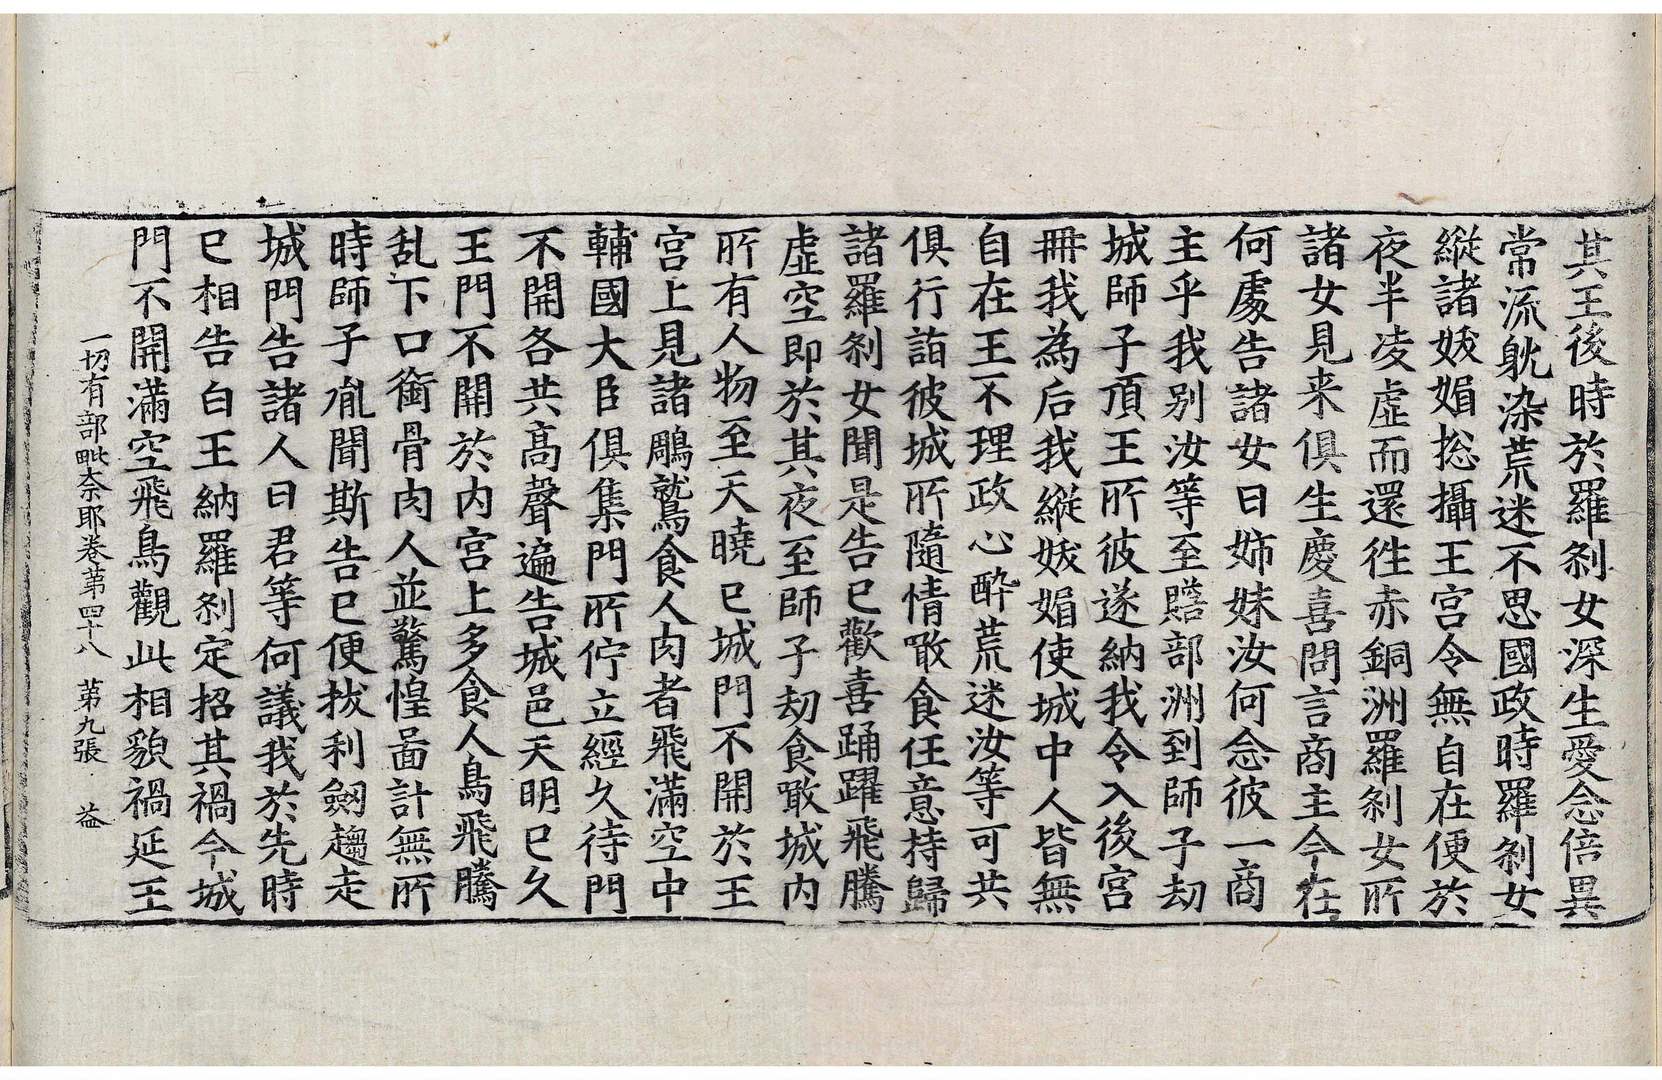 其王後時於羅刹女深生愛念倍異
常流躭染荒迷不思國政時羅刹女
縱諸妖媚捴攝王宮令無自在便於
夜半凌虛而還徃赤銅洲羅刹女所
諸女見来俱生慶喜問言商主今在
何處告諸女曰姊妹汝何念彼一商
主乎我别汝等至贍部洲到師子劫
城師子頂王所彼遂納我令入後宮
冊我為后我縱妖媚使城中人皆無
自在王不理政心醉荒迷汝等可共
俱行詣彼城所隨情噉食任意持歸
諸羅刹女聞是告已歡喜踊躍飛騰
虛空即於其夜至師子劫食噉城内
所有人物至天曉已城門不開於王
宮上見諸鵰鷲食人肉者飛滿空中
輔國大臣俱集門所佇立經久待門
不開各共高聲遍告城邑天明已久
王門不開於内宮上多食人鳥飛騰
乱下口銜骨肉人並驚惶啚計無所
時師子胤聞斯告已便拔利劒趨走
城門告諸人曰君等何議我於先時
已相告白王納羅刹定招其禍今城
門不開滿空飛鳥觀此相貌禍延王
一切有部毗奈耶卷第四十八 第九張 益